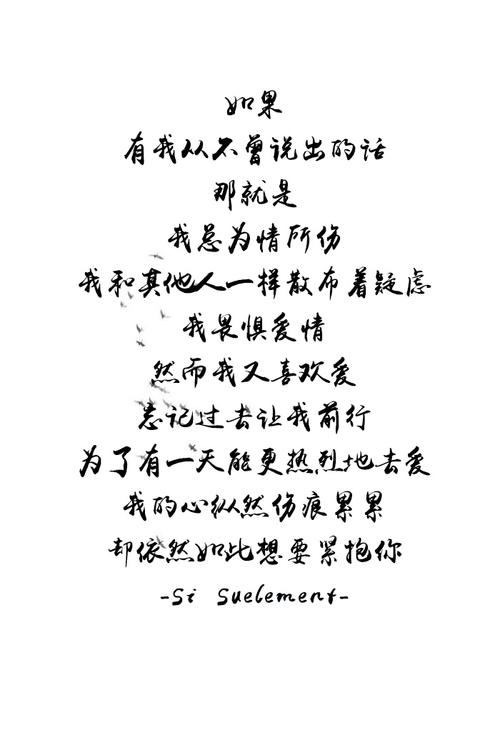 如果
有我从不曾说出的话
那就是
我总为情所伤
我和其他人一样散布着疑虑
我畏惧爱情
然而我又喜欢爱
忘记过去让我前行
为了有一天能更热烈地去爱
我的心纵然伤痕累累
却依然如此想要紧抱你
-Si Suelement-